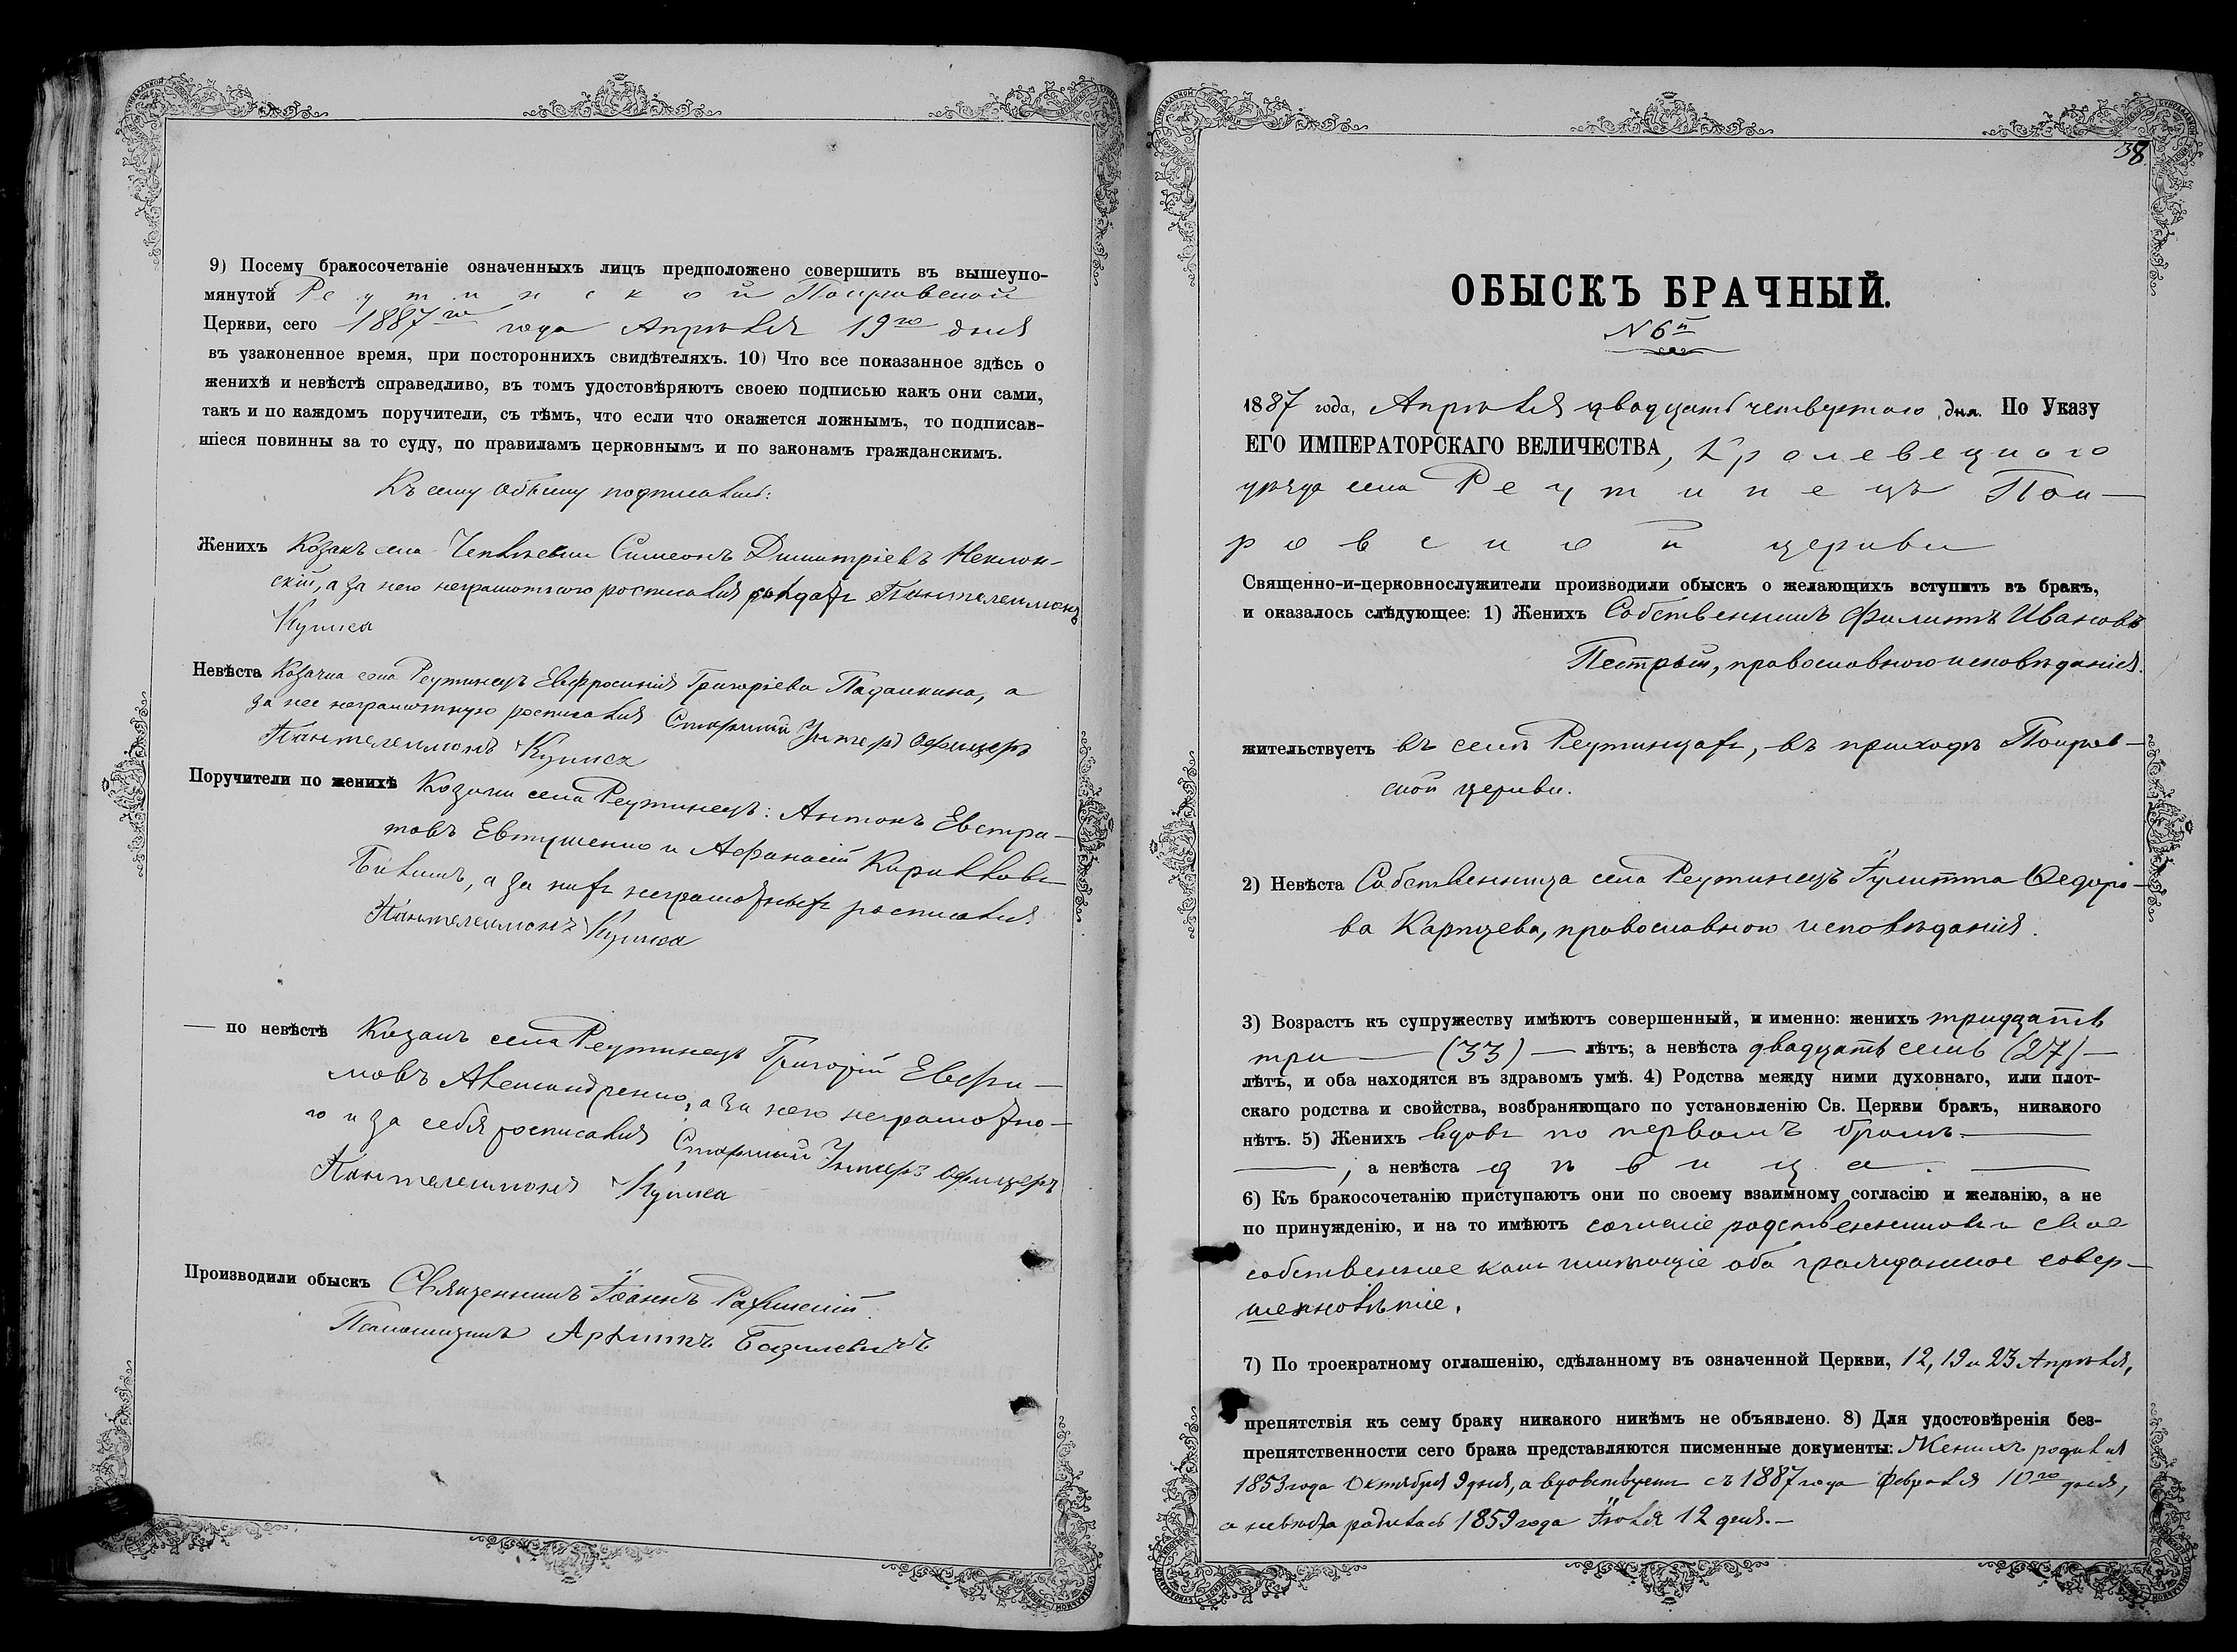 9) Посему бракосочетаніе означенныхъ лицъ предположено совершить въ вышеупо-
мянутой Реутинской Покровской
Церкви, сего 1887го года Апрѣля 19го дня
въ узаконенное время, при постороннихъ свидѣтеляхъ. 10) Что все показанное здѣсь о
женихѣ и невѣстѣ справедливо, въ томъ удостовѣряютъ своею подписью какъ они сами,
такъ и по каждомъ поручители, съ тѣмъ, что если что окажется ложнымъ, то подписав-
шіеся повинны за то суду, по правиламъ церковнымъ и по законамъ гражданскимъ.
Къ сему обыску подписались:
Женихъ Козакъ села Симеонъ Димитріевъ Неклон-
скій, а за него неграмотного росписался солдатъ Пантелеимонъ
Кушка
Невѣста Козачка села Реутинецъ Евфросинія Григоріева Падалкина, а
за нее неграмотную росписался Старшій Унтеръ Офицеръ
Пантелеимонъ Кушка
Поручители по женихѣ Козаки села Реутинецъ: Антонъ Евстра-
товъ Евтушенко и Афанасій Кирилловъ
а за нихъ неграмотныхъ росписался
Пантелеимонъ Кушка
— по невѣстѣ Козакъ села Реутинецъ Григорій Евфи-
мовъ Александренко, а за него неграмотно-
го и за себя росписался Старшій Унтеръ Офицеръ
Пантелеимонъ Кушка
Производили обыскъ Священникъ Іоаннъ
Псаломщикъ Архиппъ Базилевичъ
38
ОБЫСКЪ БРАЧНЫЙ.
№ 6й
1887 года, Апрѣля двадцать четвертаго дня. По Указу
ЕГО ИМПЕРАТОРСКАГО ВЕЛИЧЕСТВА, Кролевецкаго
уѣзда села Реутинецъ Пок-
ровской церкви
Священно-и-церковнослужители производили обыскъ о желающихъ вступить въ бракъ,
и оказалось слѣдующее: 1) Женихъ Собственникъ Филиппъ Ивановъ
Пестрый, православного исповѣданія.
жительствуетъ въ селѣ Реутинцахъ, въ приходѣ Покров-
ской церкви.
2) Невѣста Собственница села Реутинецъ Іулитта Ѳедоро-
ва Карпцева, православного исповѣданія.
3) Возрастъ къ супружеству имѣютъ совершенный, и именно: женихъ тридцать
три — (33) — лѣтъ; а невѣста двадцать семь (27) —
лѣтъ, и оба находятся въ здравомъ умѣ. 4) Родства между ними духовнаго, или плот-
скаго родства и свойства, возбраняющаго по установленію Св. Церкви бракъ, никакого
нѣтъ. 5) Женихъ вдовъ по первомъ бракѣ —
—, а невѣста дѣвица. —
6) Къ бракосочетанію приступаютъ они по своему взаимному согласію и желанію, а не
по принужденію, и на то имѣютъ согласіе родственниковъ и свое
собственное какъ имѣющіе оба гражданское совер-
шеннолѣтіе.
7) По троекратному оглашенію, сдѣланному въ означенной Церкви, 12, 19 и 23 Апрѣля,
препятствія къ сему браку никакого никѣмъ не объявлено. 8) Для удостовѣренія без-
препятственности сего брака представляются писменные документы: Женихъ родился
1853 года Октября 9 дня, а вдовствуетъ съ 1887 года Февраля 10го дня,
а невѣста родилась 1859 года Іюля 12 дня. —